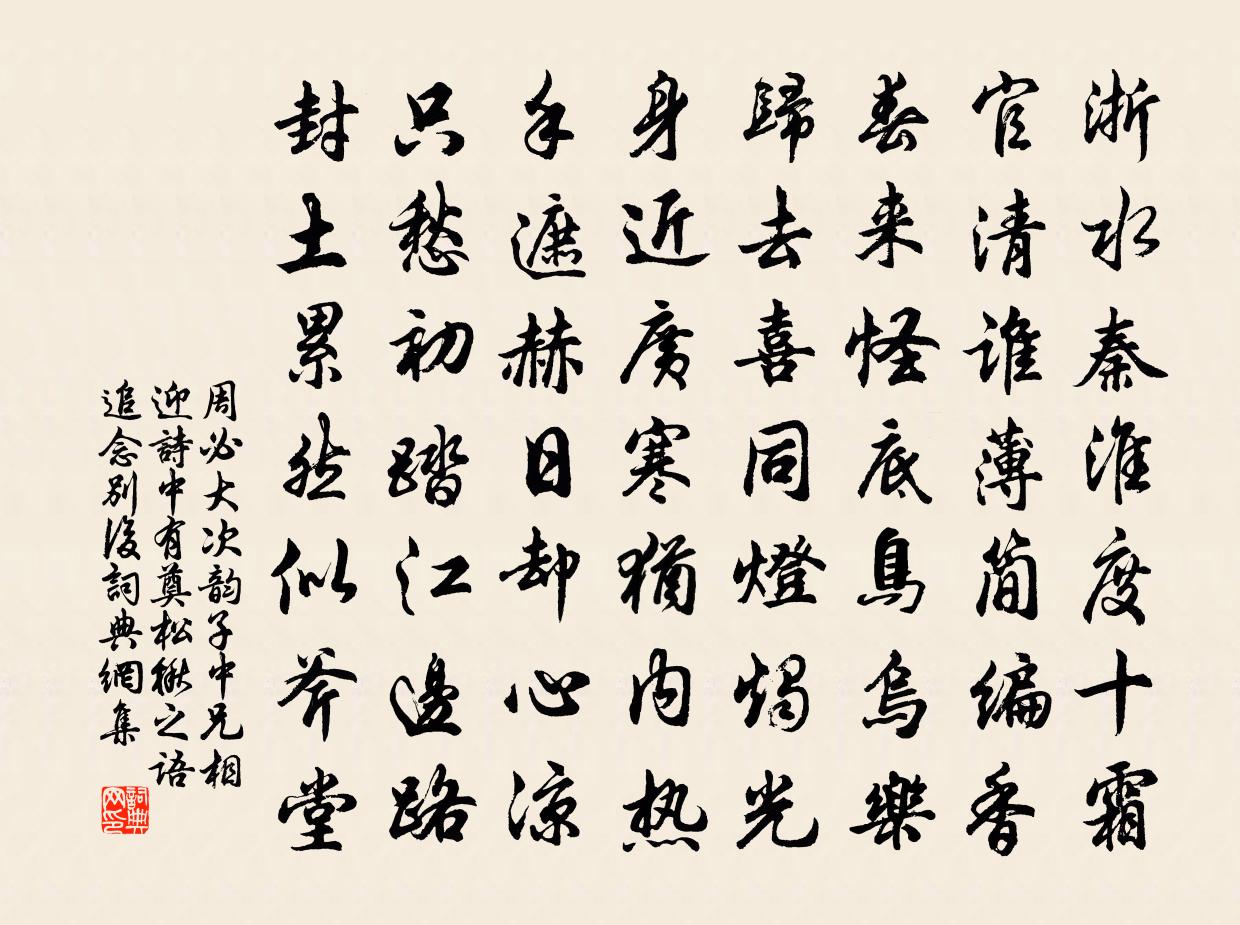 浙水秦淮度十霜
官清谁薄简编香
春来怪底鳥烏樂
歸去喜同燈燭光
身近廣寒猶内热
手遮赫日却心凉
只愁初踏江邊路
封土累然似斧堂
周必大次韵子中兄相
迎詩中有奠松楸之语
追念别後詞典網集
詞典网印